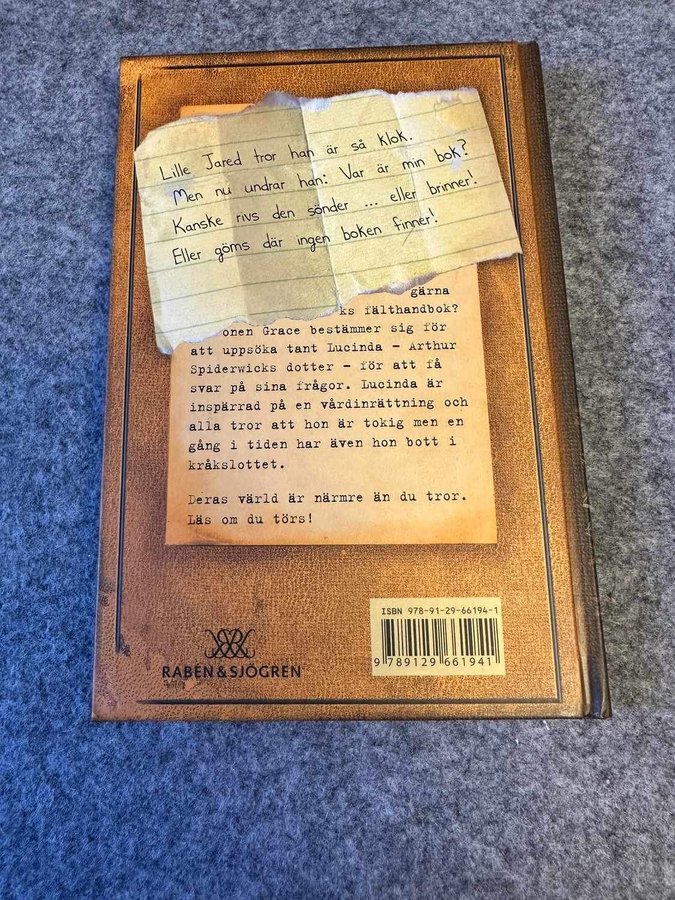 Lille Jared tror han är så klok.
Men nu undrar han: Var är min bok?
Kanske rivs den sönder ... eller brinner!
Eller göms där ingen boken finner!
gärna
ks fälthandbok?
onen Grace bestämmer sig för
att uppsöka tant Lucinda – Arthur
Spiderwicks dotter – för att få
svar på sina frågor. Lucinda är
inspärrad på en vårdinrättning och
alla tror att hon är tokig men en
gång i tiden har även hon bott i
kråkslottet.
Deras värld är närmre än du tror.
Läs om du törs!
ISBN 978-91-29-66194-1
9 789129 661941
RABÉN & SJÖGREN